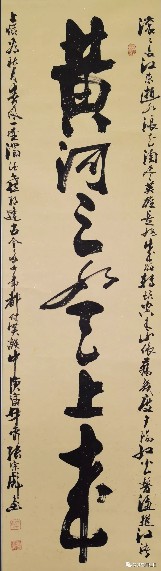 滚滚长江东逝水浪花淘尽英雄是非成败转头空青山依旧在几度夕阳红白发渔樵江渚
黄河之水天上来
上惯看秋月春风一壶浊酒喜相逢古今多少事都付笑谈中庚寅年